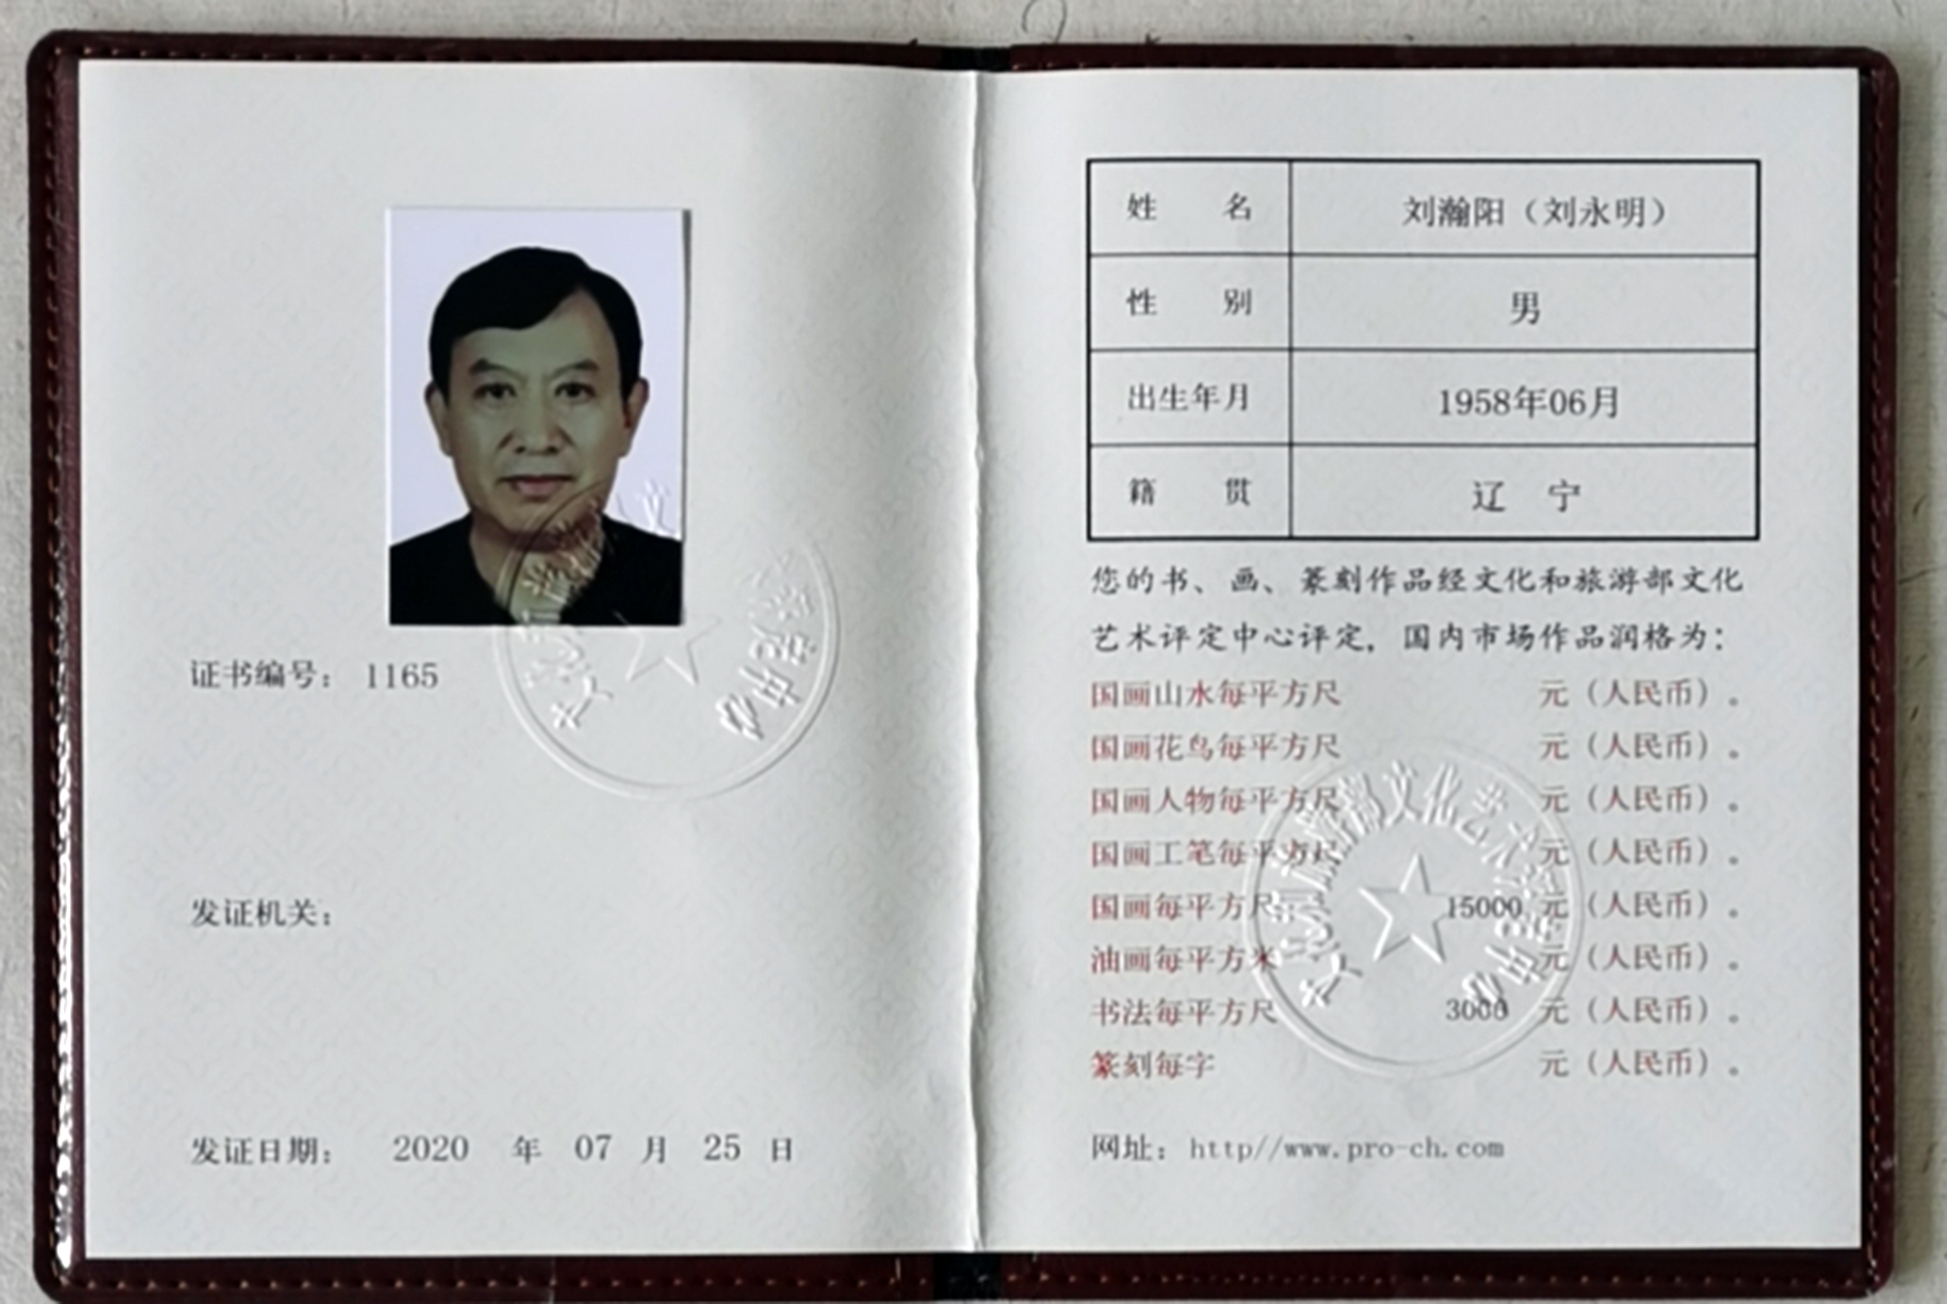 证书编号： 1165
发证机关：
发证日期： 2020 年 07 月 25 日
姓 名 刘瀚阳（刘永明）
性 别 男
出生年月 1958年06月
籍 贯 辽 宁
您的书、画、篆刻作品经文化和旅游部文化
艺术评定中心评定，国内市场作品润格为：
国画山水每平方尺 元（人民币）。
国画花鸟每平方尺 元（人民币）。
国画人物每平方尺 元（人民币）。
国画工笔每平方尺 元（人民币）。
国画每平方尺 15000 元（人民币）。
油画每平方米 元（人民币）。
书法每平方尺 3000 元（人民币）。
篆刻每字 元（人民币）。
网址：http//www.pro-ch.com
文化和旅游部文化艺术评定中心